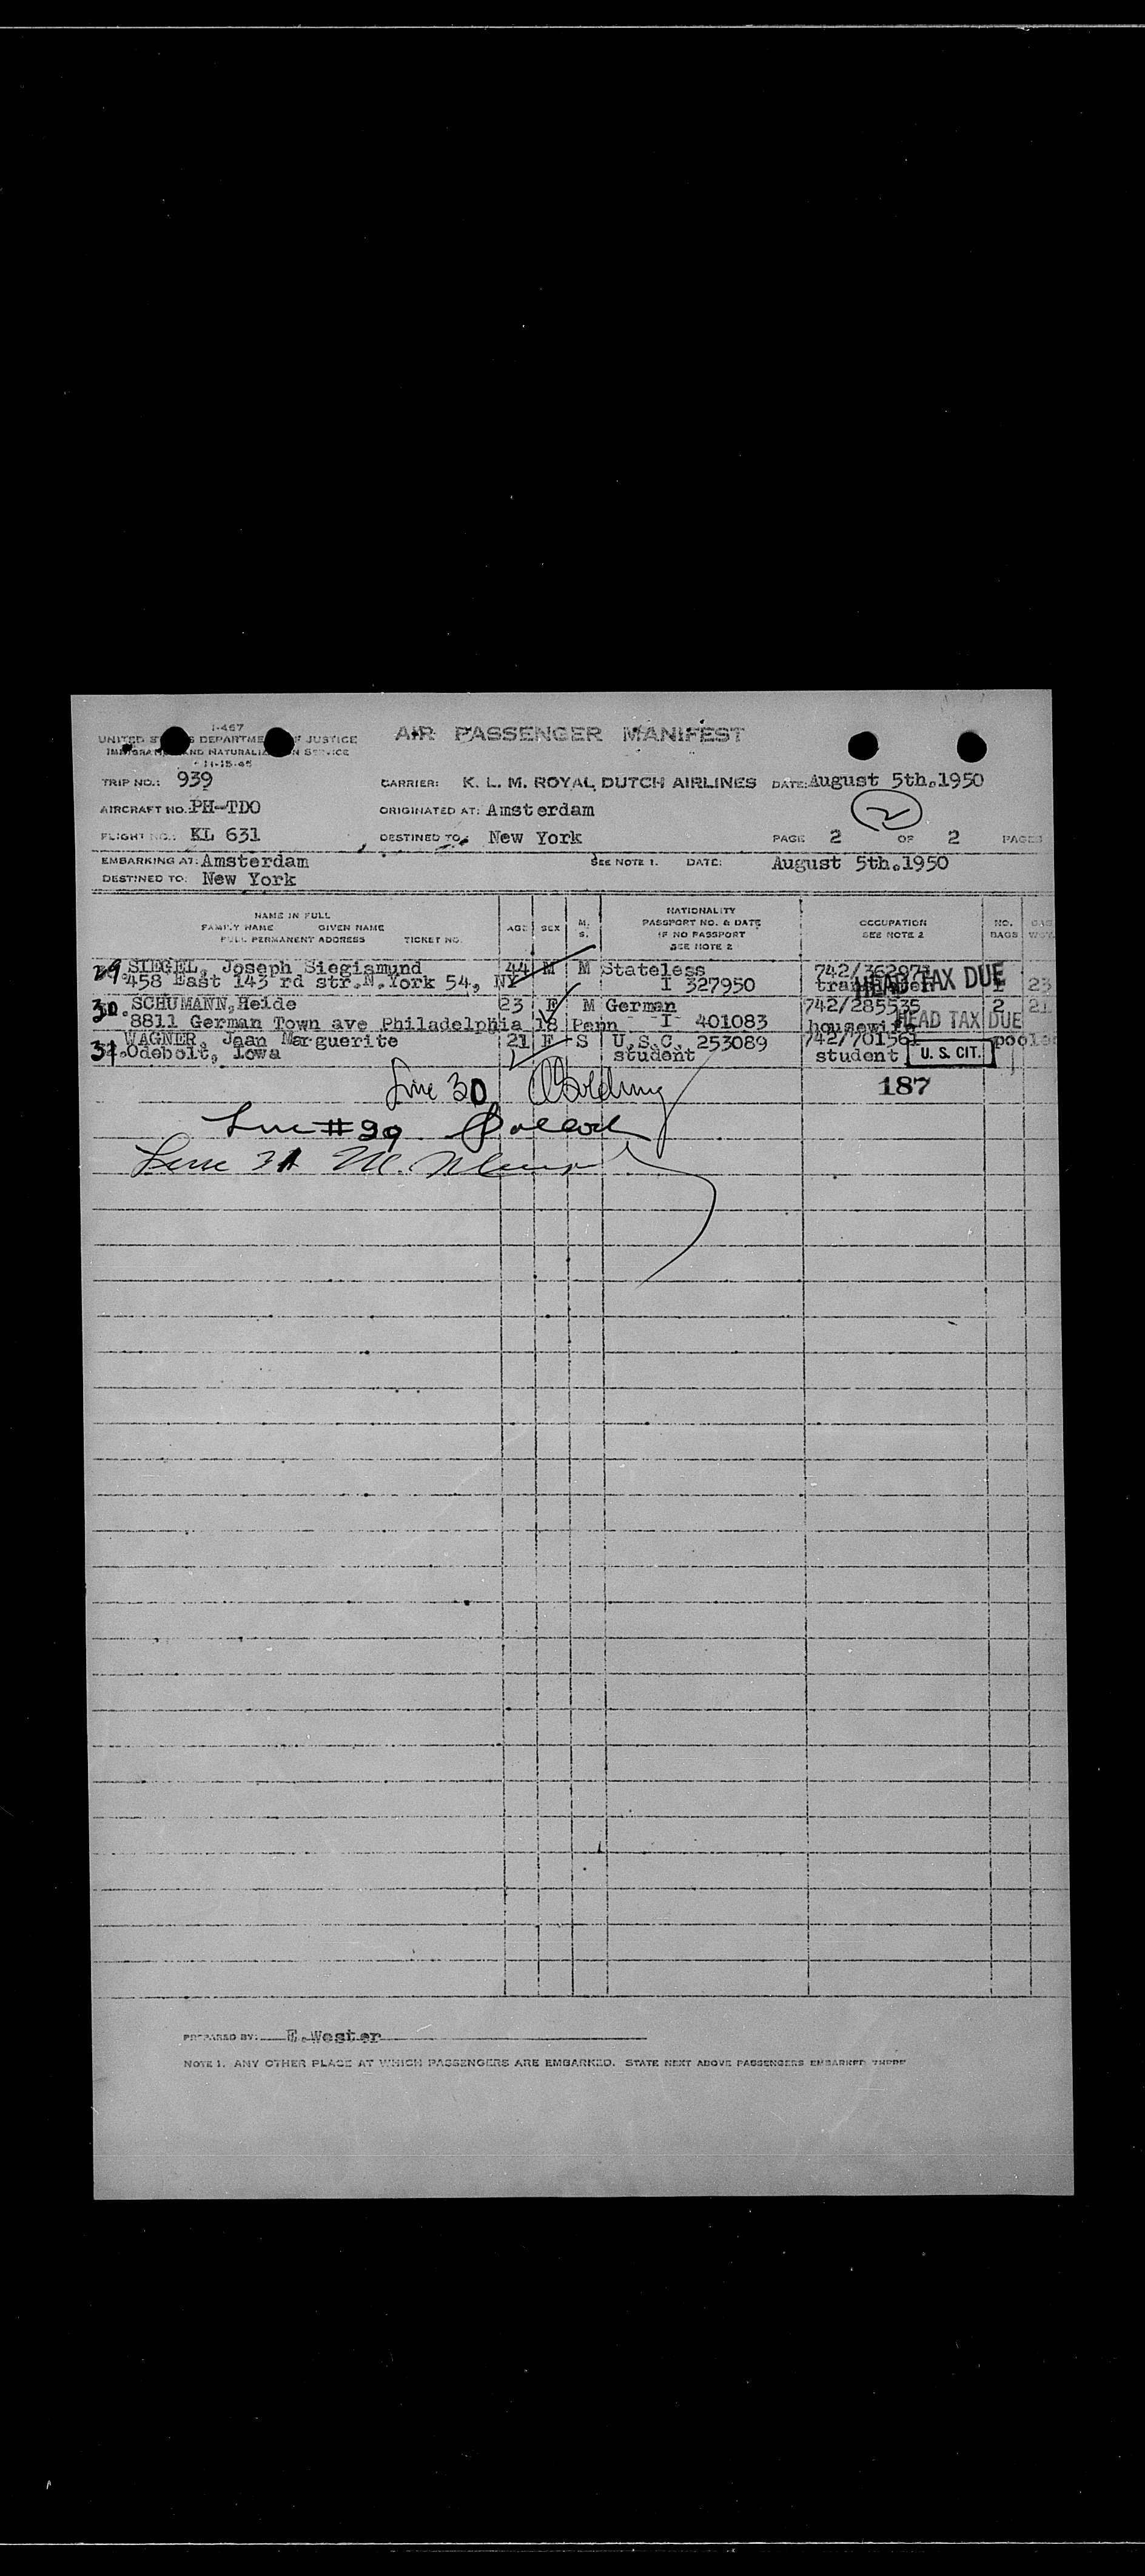 I-467
UNITED STATES DEPARTMENT OF JUSTICE
IMMIGRATION AND NATURALIZATION SERVICE
11-15-45
AIR PASSENGER MANIFEST
TRIP NO.: 939 CARRIER: K. L. M. ROYAL DUTCH AIRLINES DATE: August 5th.1950
AIRCRAFT NO. PH-TDO ORIGINATED AT: Amsterdam 2
FLIGHT NO.: KL 631 DESTINED TO: New York PAGE 2 OF 2 PAGES
EMBARKING AT: Amsterdam SEE NOTE 1. DATE: August 5th.1950
DESTINED TO: New York
NAME IN FULL
FAMILY NAME GIVEN NAME
FULL PERMANENT ADDRESS TICKET NO.
AGE SEX M. S.
NATIONALITY
PASSPORT NO. & DATE
IF NO PASSPORT
SEE NOTE 2
OCCUPATION
SEE NOTE 2
NO. BAGS
29. SIEGEL, Joseph Siegismund 44 M M Stateless
458 East 143 rd str.N.York 54, NY I 327950 HEAD TAX DUE 23
30. SCHUMANN,Heide 23 F M German 742/285535 2 21
8811 German Town ave Philadelphia 18 Penn I 401083 housewife HEAD TAX DUE
31. WAGNER, Jean Marguerite 21 F S U.S.C. 253089 742/701561
Odebolt, Iowa student student U. S. CIT.
Line 30 187
Line #29
Line 31 M.
PREPARED BY: E.Wester
NOTE 1. ANY OTHER PLACE AT WHICH PASSENGERS ARE EMBARKED. STATE NEXT ABOVE PASSENGERS EMBARKED THERE